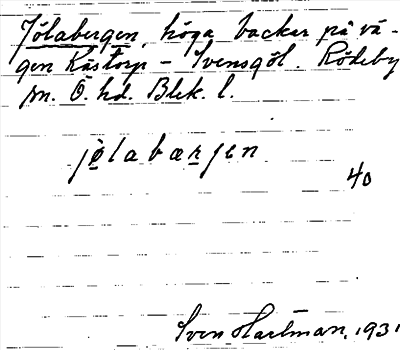 Jölabergen, höga backar på vä-
gen Råstorp - Svensgöl. Rödeby
sn. Ö. hd. Blek. l.
jölabærjen
40
Sven Hartman, 1931